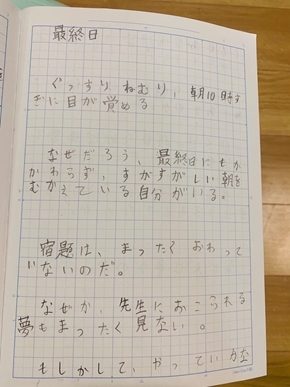 最終日
ぐっすりねむり、朝10時す
ぎに目が覚める
なぜだろう、最終日にもか
かわらず、すがすがしい朝を
むかえている自分がいる。
宿題は、まったくおわって
いないのだ。
なぜか、先生におこられる
夢もまったく見ない。
もしかして、やっていうな